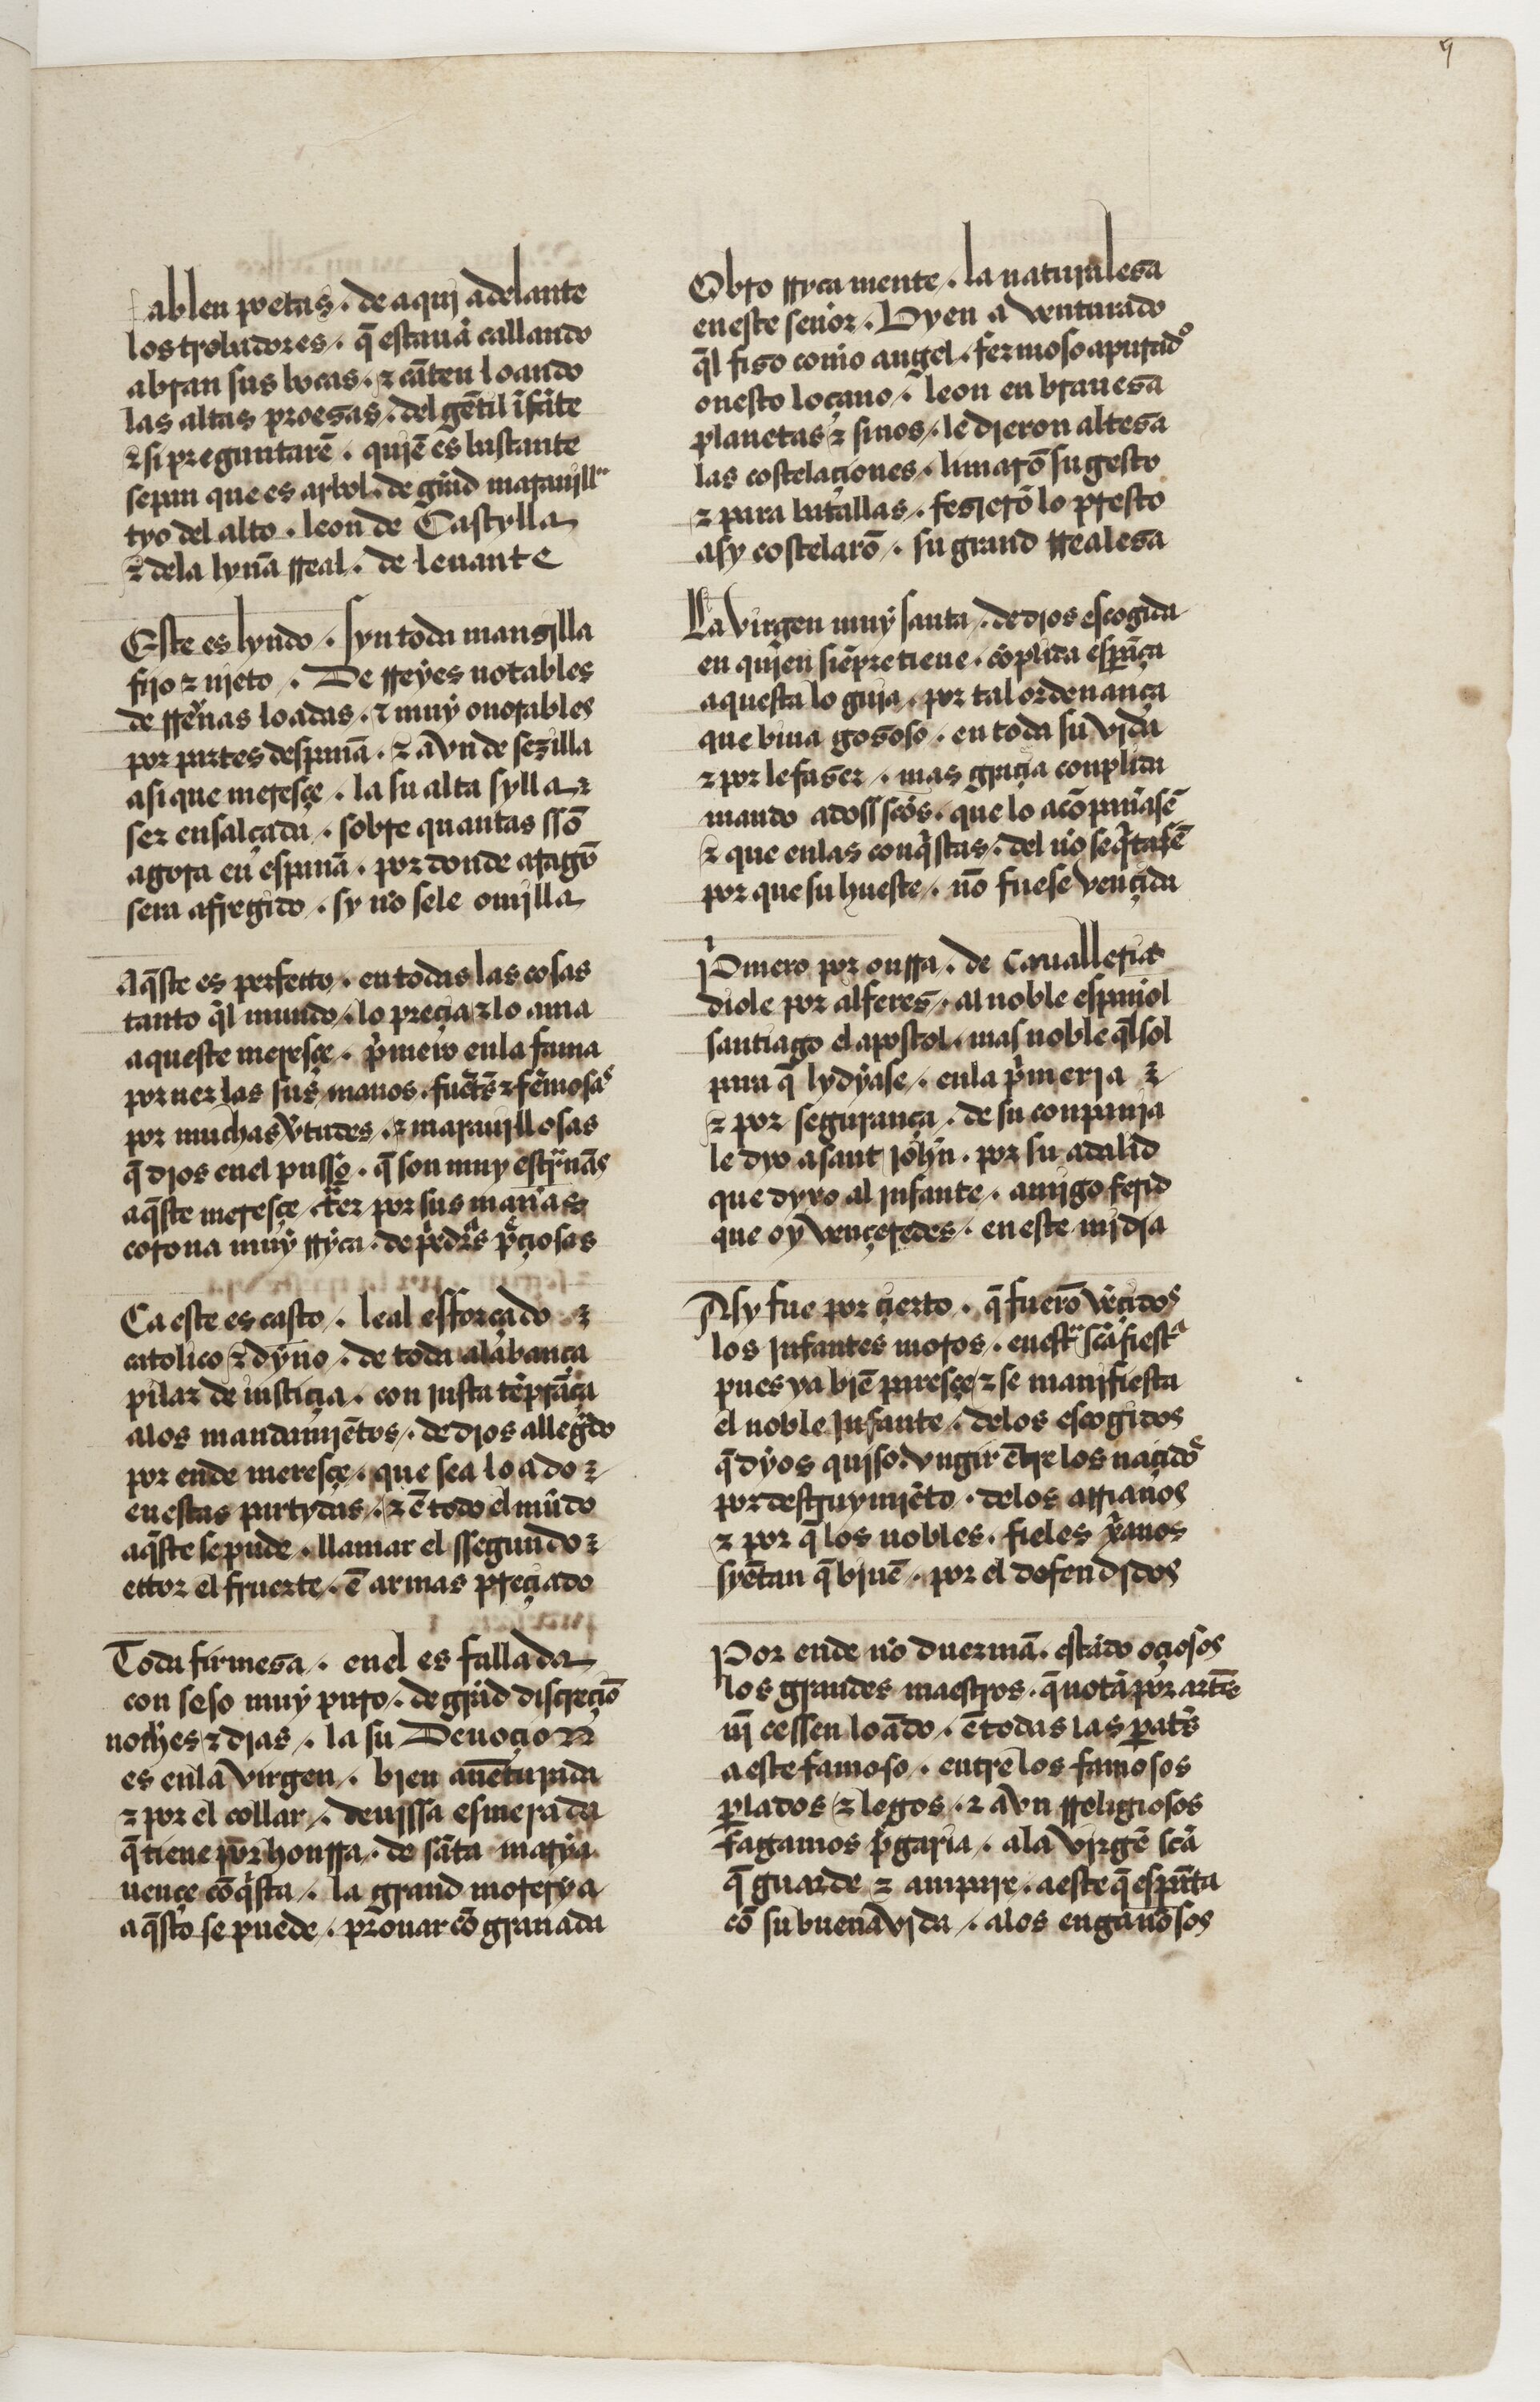 ablen poetas · de aquj adelante
los trobadores · q̃ estauã callando
abran sus bocas · ⁊ cãten loando
las altas proesas · del gẽtil ĩfãte
⁊ si preguntarẽ · qujẽ es bastante
sepan que es arbol · de grãd marauillª
tyo del alto · leon de Castylla
⁊ dela lyña rreal · de leuante
Este es lyndo · syn toda mansilla
fijo ⁊ njeto · De rreyes notables
de rreynas loadas · ⁊ muy onorables
por partes despaña · ⁊ avn de sezilla
asi que meresçe · la su alta sylla
ser ensalçada · sobre quantas ssõ
agora en españa · por donde aragõ
sera afregido · sy nõ sele omilla
Aq̃ste es perfetto · en todas las cosas
tanto q̃l mundo · lo preçia ⁊ lo ama
aqueste meresçe · p̃mero enla fama
por uer las sus manos · fuertes ⁊ fermosas
por muchas ṽtudes · ⁊ marauillosas
q̃ djos enel pusso · q̃ son muy estrañas
aq̃ste meresçe · tẽr por sus mañas
corona muy rryca · de pẽdrªs p̃çiosas
Ca este es casto · leal esforçado ⁊
catolico ⁊ dyno · de toda alabança
pilar de iusticia · con justa tẽprãça
alos mandamjẽtos · de djos allegado
por ende meresçe · que sea loado ⁊
en estas partydas · ⁊ ẽ todo el mũdo
aq̃ste se puede · llamar el ssegundo ⁊
ettor el fruerte · ẽ armas preçiado
Toda firmesa · enel es fallada
con seso muy puro · de grãd discreçiõ
noches ⁊ djas · la su Deuoçion
es enla virgen · bien auẽturada
⁊ por el collar · deuissa esmerada
q̃ tiene por honrra · de sãta marya
uençe cõq̃sta · la grand moterya
aq̃sto se puede · prouar cõ granada
Obro rryca mente · la naturalesa
en este señor · Byen a venturado
q̃l fiso como angel · fermoso apuradº
onesto loçano · leon en brauesa
planetas ⁊ sinos · le dieron altesa
las costelaçiones · limarõ su gesto
⁊ para batallas · fesjerõ lo presto
asy costelarõ · su grand rrealesa
La virgen muy santa · de djos escogida
en qujen siẽpre tiene · cõplida esperãça
aquesta lo guja · por tal ordenança
que biua gososo · en toda su vida
⁊ por le faser · mas graçia conplida
mando adoss scõs · que lo acõpañasẽ
⁊ que enlas conq̃stas · del nõ se q̃tasẽ
por que su hueste · nõ fuese vençida
Pmero por onrra · de Cauallería
diole por alferes · al noble español
santiago el apostol · mas noble q̃l sol
para q̃ lydyase · enla p̃meria ⁊
⁊ por segurança · de su conpanja
le dyo a sant johñ · por su adalid
que dyxo al jnfante · amigo ferid
que oy vençeredes · en este mj dja
Asy fue por çierto · q̃ fuerõ vẽçidos
los jnfantes moros · en estª scã fiestª
pues ya biẽ paresçe ⁊ se manifiesta
el noble jnfante · delos escogidos
q̃ dyos quiso · vngir ẽtre los naçidos
por destruymjẽto · delos arrianos
⁊ por q̃ los nobles · fieles xp̃anos
syẽtan q̃ biuẽ · por el defendidos
Por ende nõ duermã · estãdo oçiosos
los grandes maestros · q̃ notã por artes
nj cessen loãdo · ẽ todas las partes
a este famoso · entre los famosos
p̱lados ⁊ legos · ⁊ avn rreligiosos
fagamos p̃garia · ala virgẽ scã
q̃ guarde ⁊ ampare · a este q̃ espãta
cõ su buena vida · alos engañosos